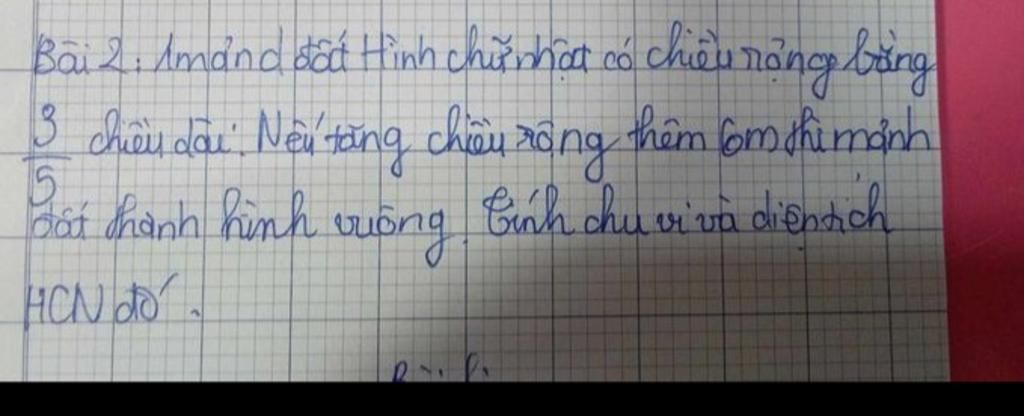 Bài 2: 1 mảnh đất Hình chữ nhật có chiều rộng bằng
3/5 chiều dài. Nếu tăng chiều rộng thêm 6m thì mảnh
đất thành hình vuông. Tính chu vi và diện tích
HCN đó.